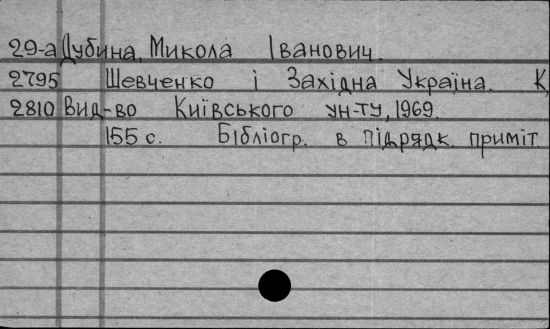 29-а Дубина, Микола Іванович.
2795 Шевченко і Західна Україна. К
2810 Вид-во Київського ун-ту, 1969.
155 с. Бібліогр. в підрядк. приміт